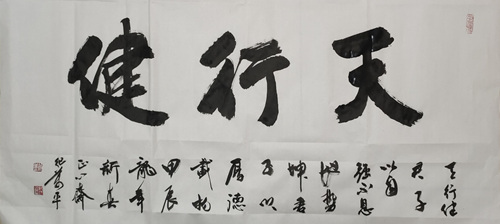 天行健
天行健
君子
以自
强不息
地势
坤君
子以
厚德
載物
甲辰
龍年
新春